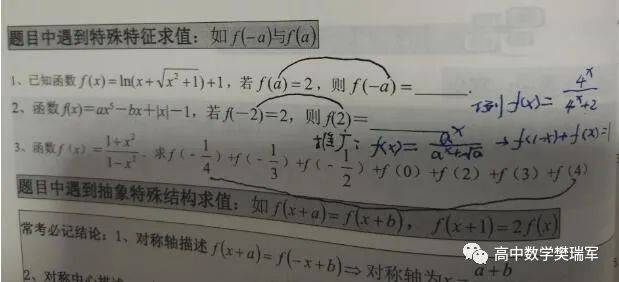 题目中遇到特殊特征求值：如 f(-a)与f(a)
1、已知函数 f(x)=ln(x+√(x²+1))+1，若 f(a)=2，则 f(-a)=______.
例 f(x)=4^x/(4^x+2)
2、函数f(x)=ax⁵-bx+|x|-1，若 f(-2)=2，则 f(2)=______
推广：f(x)=a^x/(a^x+√a) → f(1-x)+f(x)=1
3、函数 f(x)=(1+x²)/(1-x²)．求 f(-1/4)+f(-1/3)+f(-1/2)+f(0)+f(2)+f(3)+f(4)
题目中遇到抽象特殊结构求值：如 f(x+a)=f(x+b)，f(x+1)=2f(x)
常考必记结论：1、对称轴描述 f(x+a)=f(-x+b)⇒对称轴为x=(a+b)
2、对称中心描述
高中数学樊瑞军